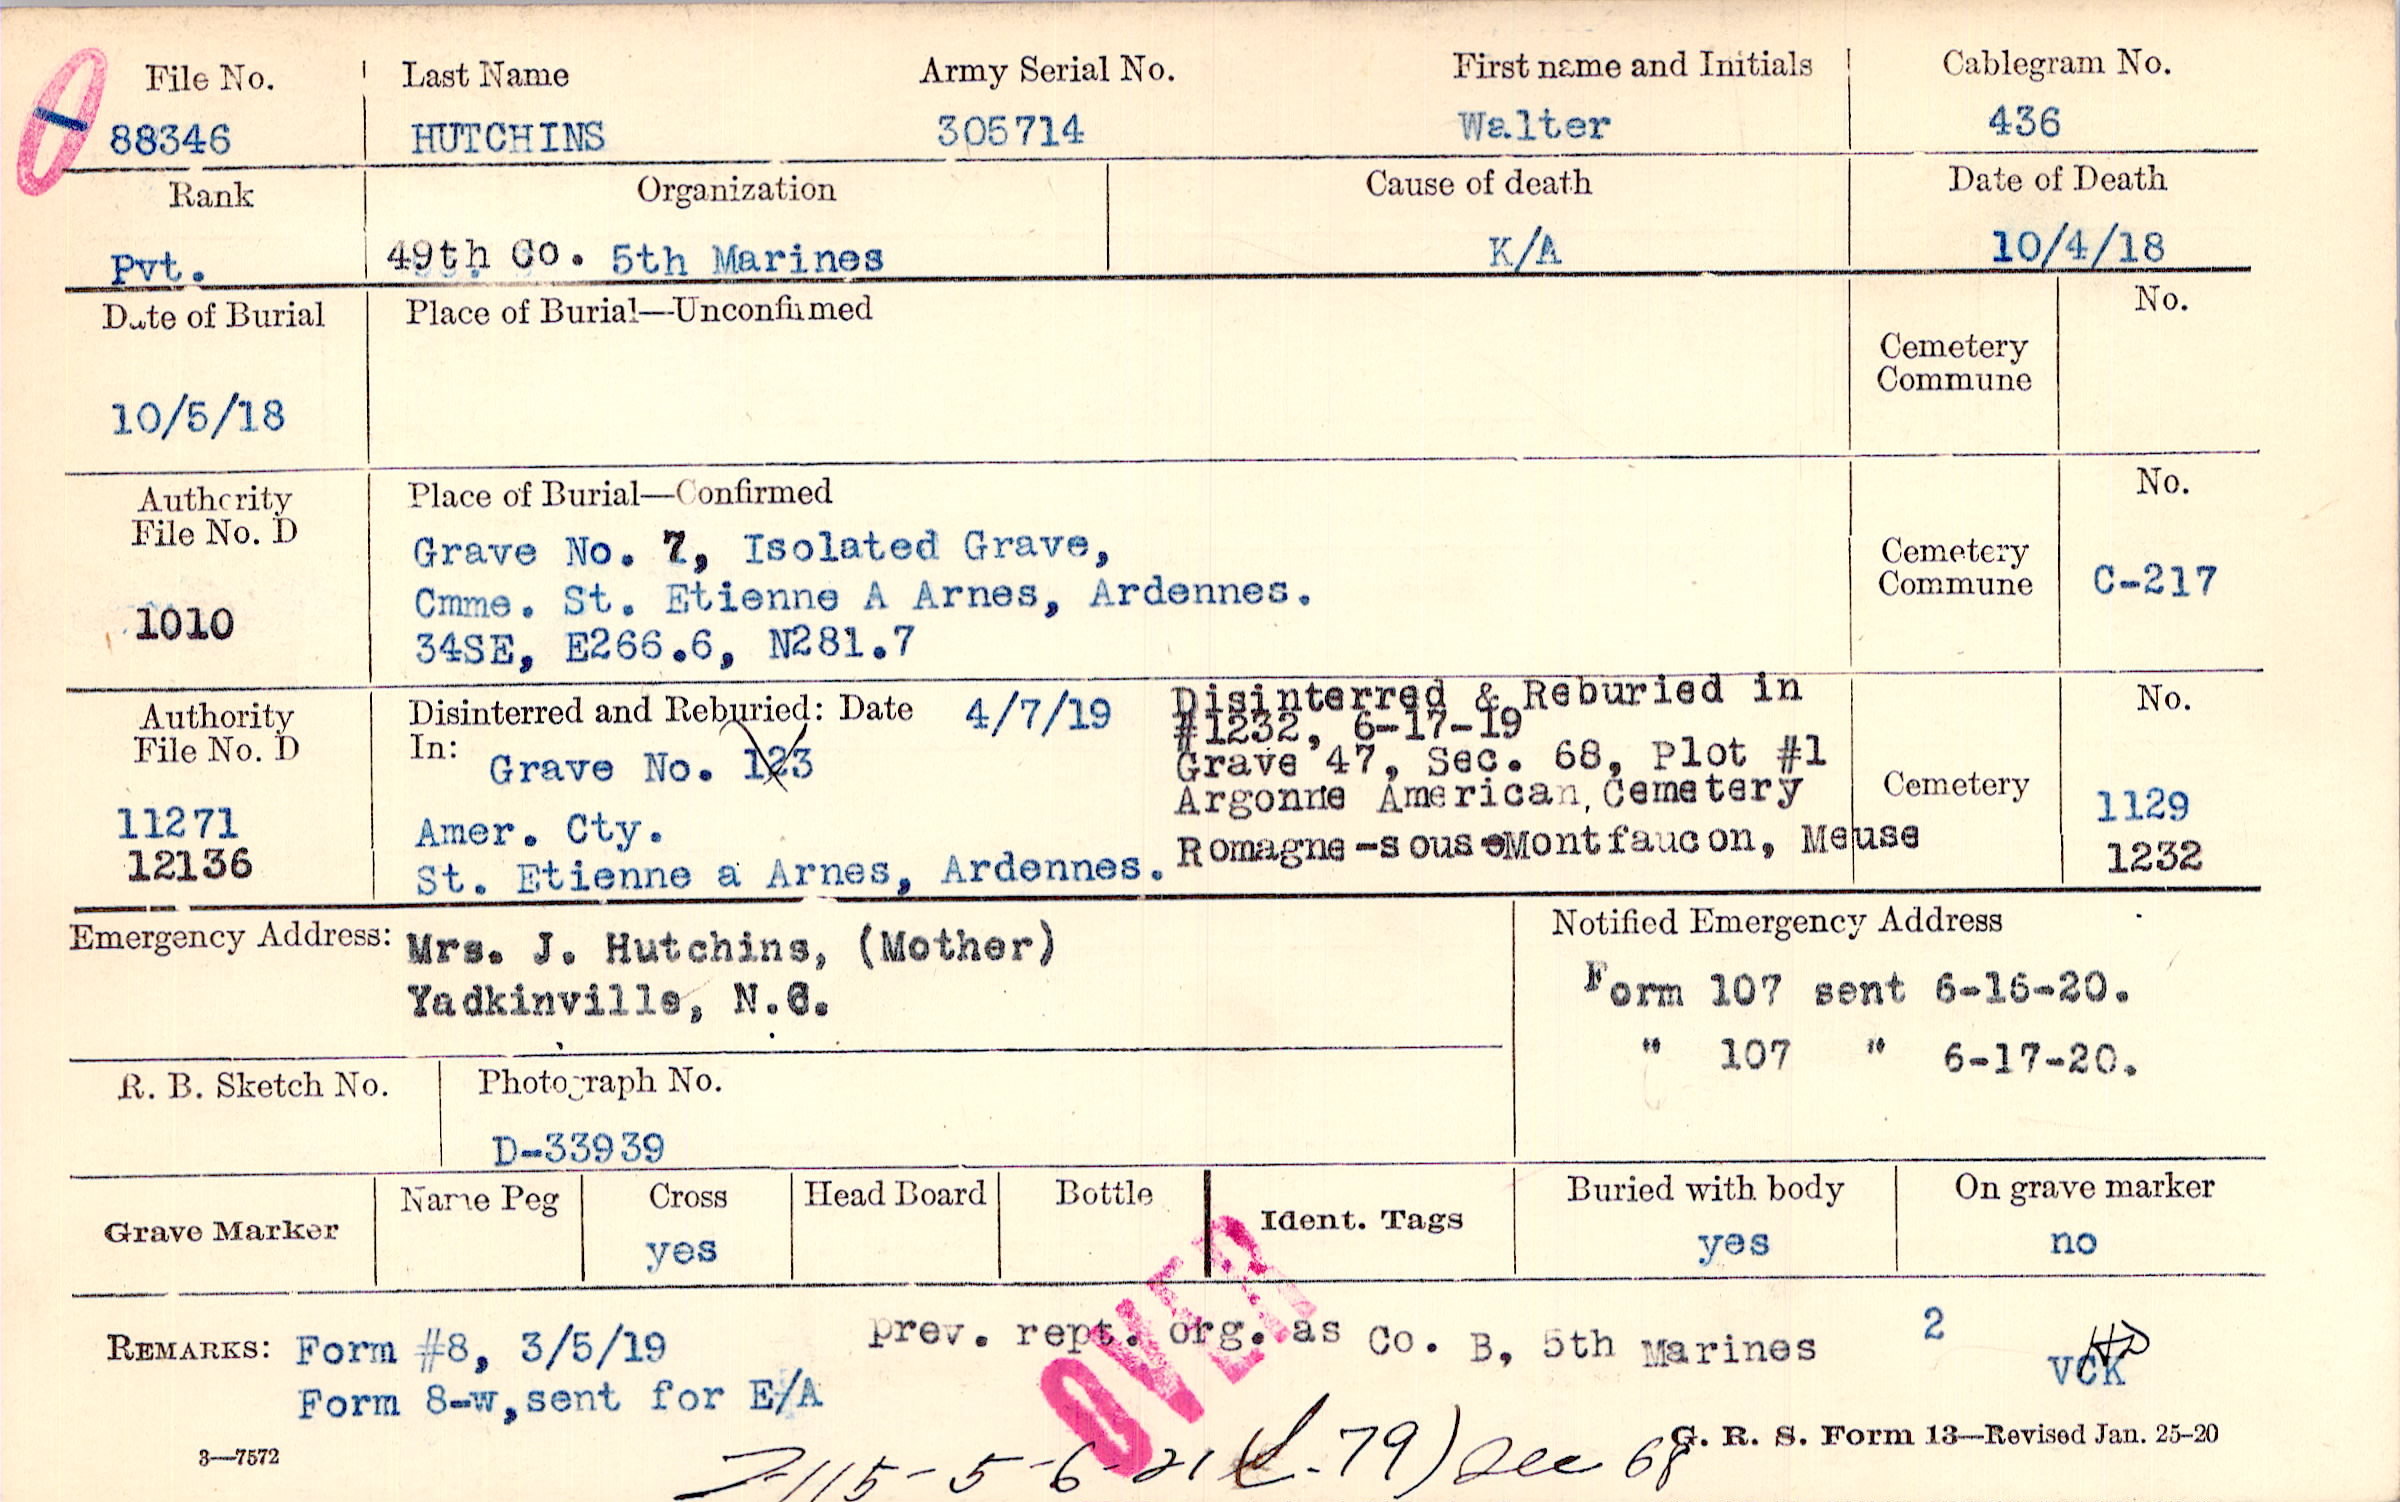 File No.
88346
Last Name
HUTCHINS
Army Serial No.
305714
First name and Initials
Walter
Cablegram No.
436
Rank
Pvt.
Organization
49th Co. 5th Marines
Cause of death
K/A
Date of Death
10/4/18
Date of Burial
10/5/18
Place of Burial—Unconfirmed
Cemetery
Commune
No.
Authority
File No. D
1010
Place of Burial—Confirmed
Grave No. 7, Isolated Grave,
Cmme. St. Etienne A Arnes, Ardennes.
34SE, E266.6, N281.7
Cemetery
Commune
No.
C-217
Authority
File No. D
11271
12136
Disinterred and Reburied: Date 4/7/19
In: Grave No. 123
Amer. Cty.
St. Etienne a Arnes, Ardennes.
Disinterred & Reburied in
#1232, 6-17-19
Grave 47, Sec. 68, Plot #1
Argonne American Cemetery
Romagne-sous-Montfaucon, Meuse
Cemetery
No.
1129
1232
Emergency Address: Mrs. J. Hutchins, (Mother)
Yadkinville, N.C.
Notified Emergency Address
Form 107 sent 6-16-20.
" 107 " 6-17-20.
R. B. Sketch No.
Photograph No.
D-33939
Grave Marker
Name Peg
Cross
yes
Head Board
Bottle
Ident. Tags
Buried with body
yes
On grave marker
no
OVER
REMARKS: Form #8, 3/5/19
Form 8-w, sent for E/A
prev. rept. org. as Co. B, 5th Marines
2
VCK
3—7572
115-5-6-21 (L-79) Sec 68
G. R. S. Form 13—Revised Jan. 25-20